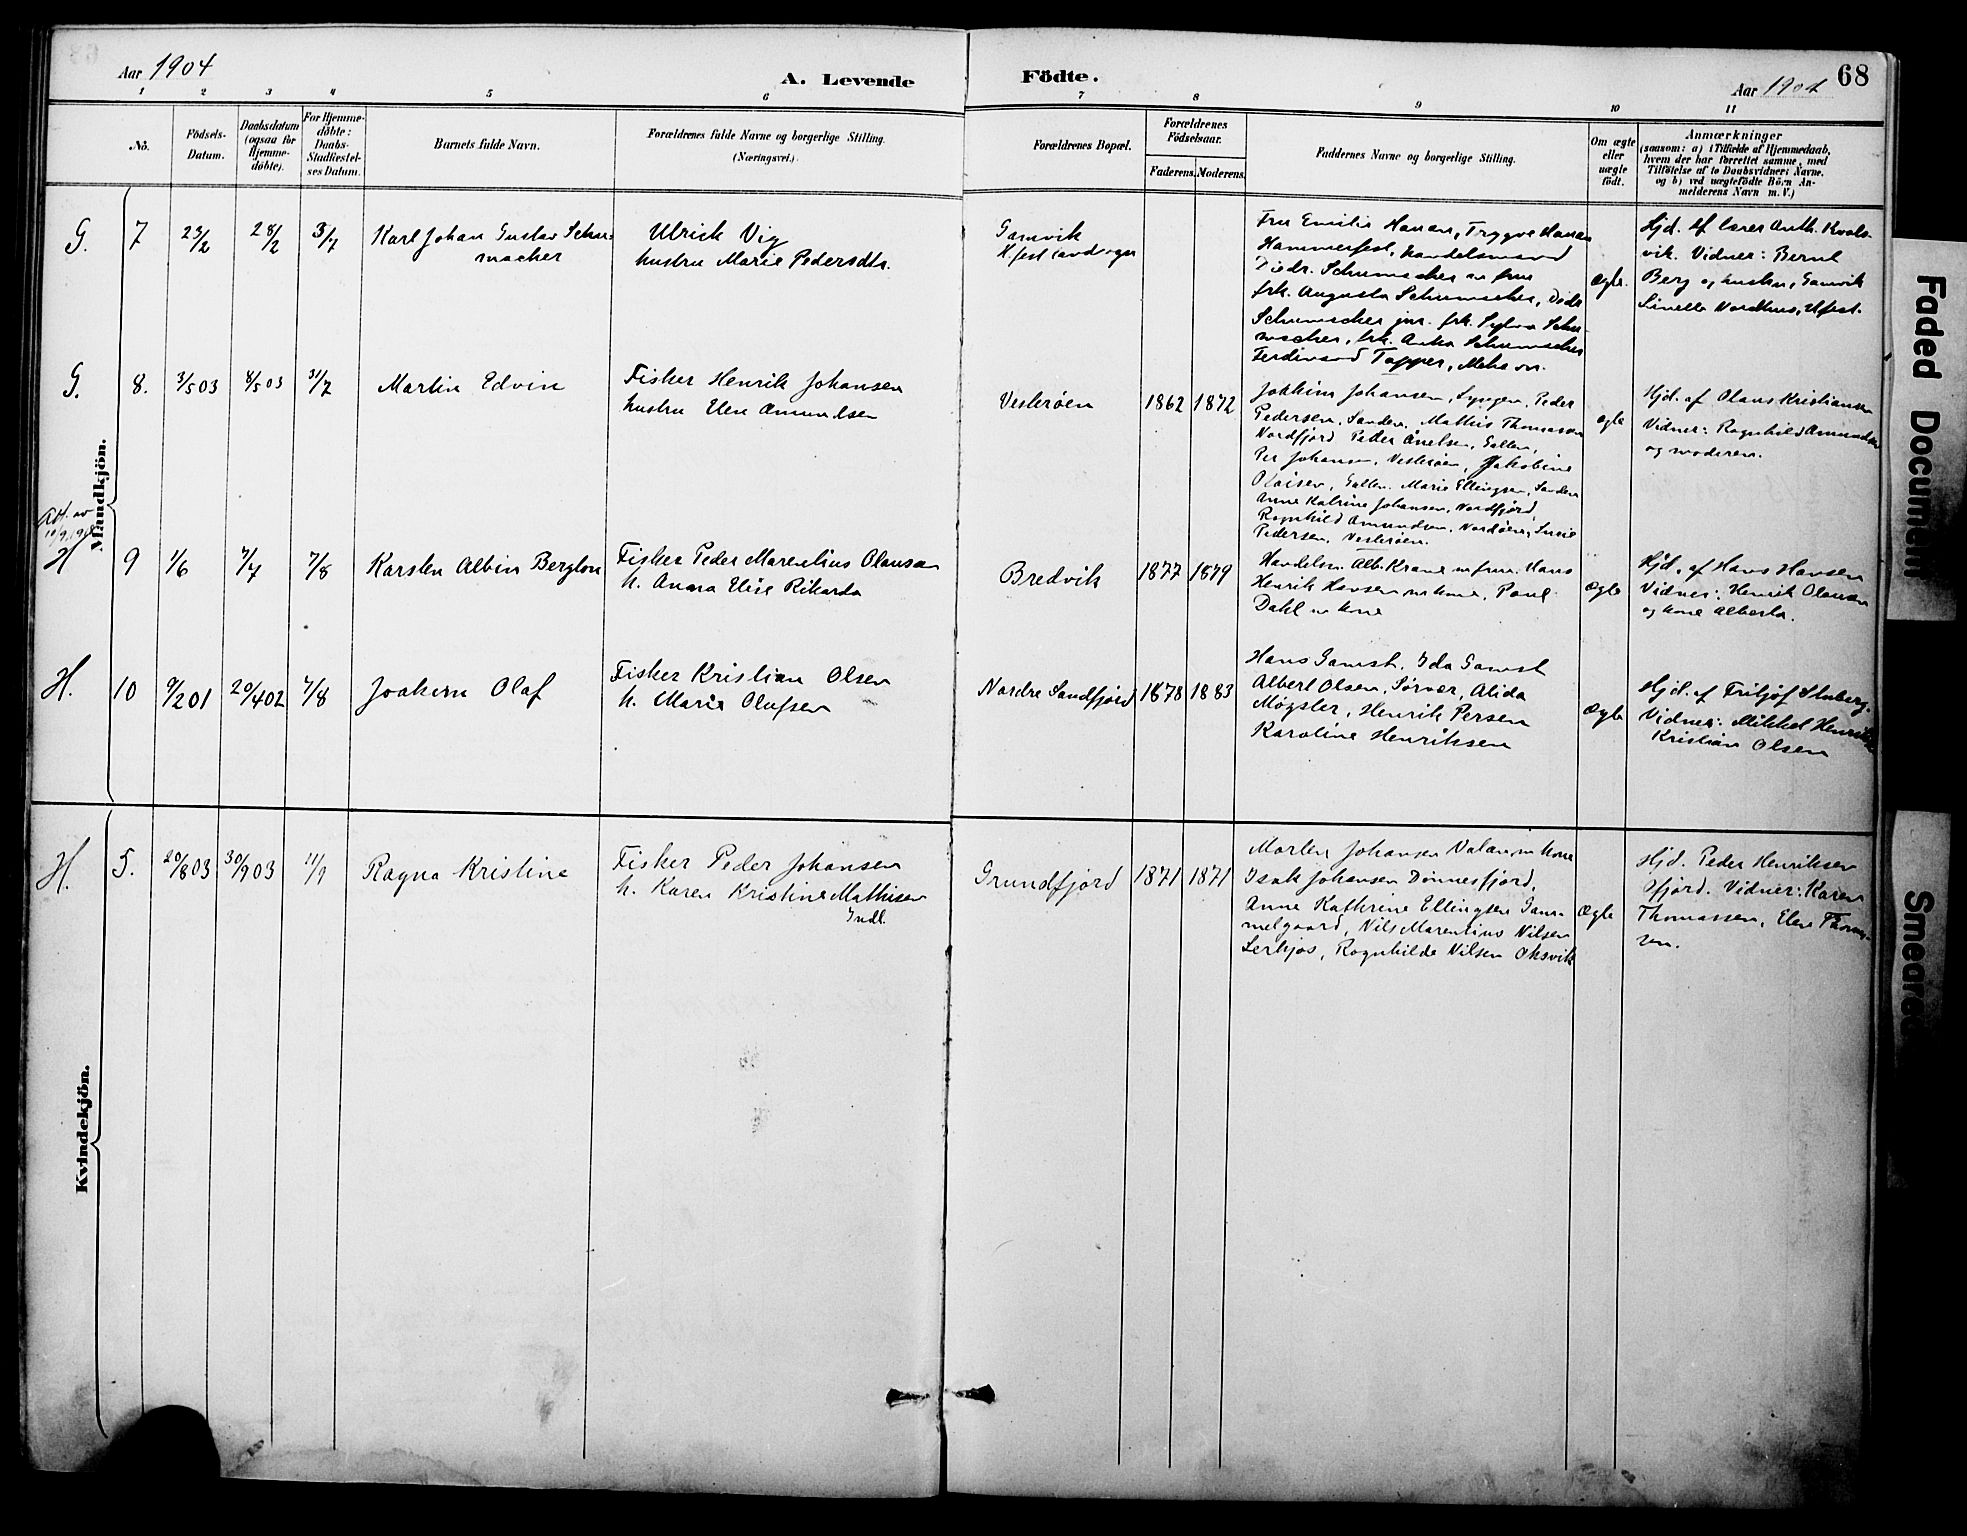 Aar 1904
A. Levende
Födte.
Aar 1904
68
1 2 3 4 5 6 7 8 9 10 11
No.
Födsels-
Datum.
Daabsdatum
(ogsaa for
Hjemme-
døbte).
For Hjemme-
døbte:
Daabs-
Stadfæstel-
ses Datum.
Barnets fulde Navn.
Forældrenes fulde Navne og borgerlige Stilling.
(Næringsvei.)
Forældrenes Bopæl.
Forældrenes
Fødselsaar.
Faderens.
Moderens.
Faddernes Navne og borgerlige Stilling.
Om ægte
eller
uægte
født.
Anmærkninger
(saasom: a) i Tilfælde af Hjemmedaab,
hvem der har forrettet samme, med
Tilføielse af to Daabsvidners Navne,
og b) ved uægtefødte Børn An-
melderens Navn m. V.)
Mandkjön.
G. 7 23/2 28/2 3/7
Karl Johan Gustav Schu-
macher
Ulrick Vig
hustru Marie Pedersdtr.
Gamvik
H.fest landsogn
Fru Emilie Hauan, Trygve Hauan
Hammerfest, handelsmand
Diedr. Schumacher m frue
frk. Augusta Schumacher, Didr
Schumacher jnr. frk. Sylva Schu-
macher, frk. Anka Schumacher
Ferdinand Topper, Mehavn.
ægte.
Hjd. af lærer Anth. Kvals-
vik. Vidner: Bernt
Berg og hustru, Gamvik
Nordhus, Hfest.
G. 8. 3/5 03 8/5 03 31/7
Martin Edvin
Fisker Henrik Johansen
hustru Elen Amundsen
Vesterøen
1862 1872
Joakim Johansen, Lyngen, Peder
Pedersen, Sanden, Mathis Thomassen
Nordfjord Peder Anelsen, Galten,
Per Johansen, Vesterøen, Jakobine
Olaisen, Galten. Marie Ellingsen, Sanden
Anne Katrine Johansen, Nordfjord,
Ragnhild Amundsen, Nordøen,
Pedersen, Vesterøen.
ægte
Hjd. af Olaus Kristiansen
Vidner: Ragnhild Amundsen
og moderen.
Att. av
H 9 1/6 7/7 7/8
Karsten Albin Bergton
Fisker Peder Marentius Olausen
h. Anna Elise Rikarda
Bredvik
1877 1879
Handelsm. Alb. Krane m frue. Hans
Henrik Hansen m kone, Poul
Dahl m kone
ægte
Hjd. af Hans Hansen
Vidner: Henrik Olausen
og kone Alberta.
H. 10 9/2 01 20/4 02 7/8
Joakim Olaf
Fisker Kristian Olsen
h. Marie Olufsen
Nordre Sandfjord
1878 1883
Hans Gamst, Ida Gamst
Albert Olsen, Sørvær, Alida
Møgster, Henrik Persen
Karoline Henriksen
ægte
Hjd. af Fritjof Stuberg.
Vidner: Mikkel Henriksen
Kristian Olsen
Kvindekjön.
H. 5. 20/8 03 30/9 03 11/9
Ragna Kristine
Fisker Peder Johansen
h. Karen Kristine Mathisen
Indl.
Grundfjord
1871 1871
Morten Johansen Valan m kone
Isak Johansen Dønnesfjord,
Anne Kathrine Ellingsen Gam-
melgaard, Nils Marentius Nilsen
Lerkjos, Ragnhilde Nilsen Oksvik
ægte
Hjd. Peder Henriksen
Ofjord. Vidner: Karen
Thomassen, Elen Thomas-
sen.
Faded Document
Smeared